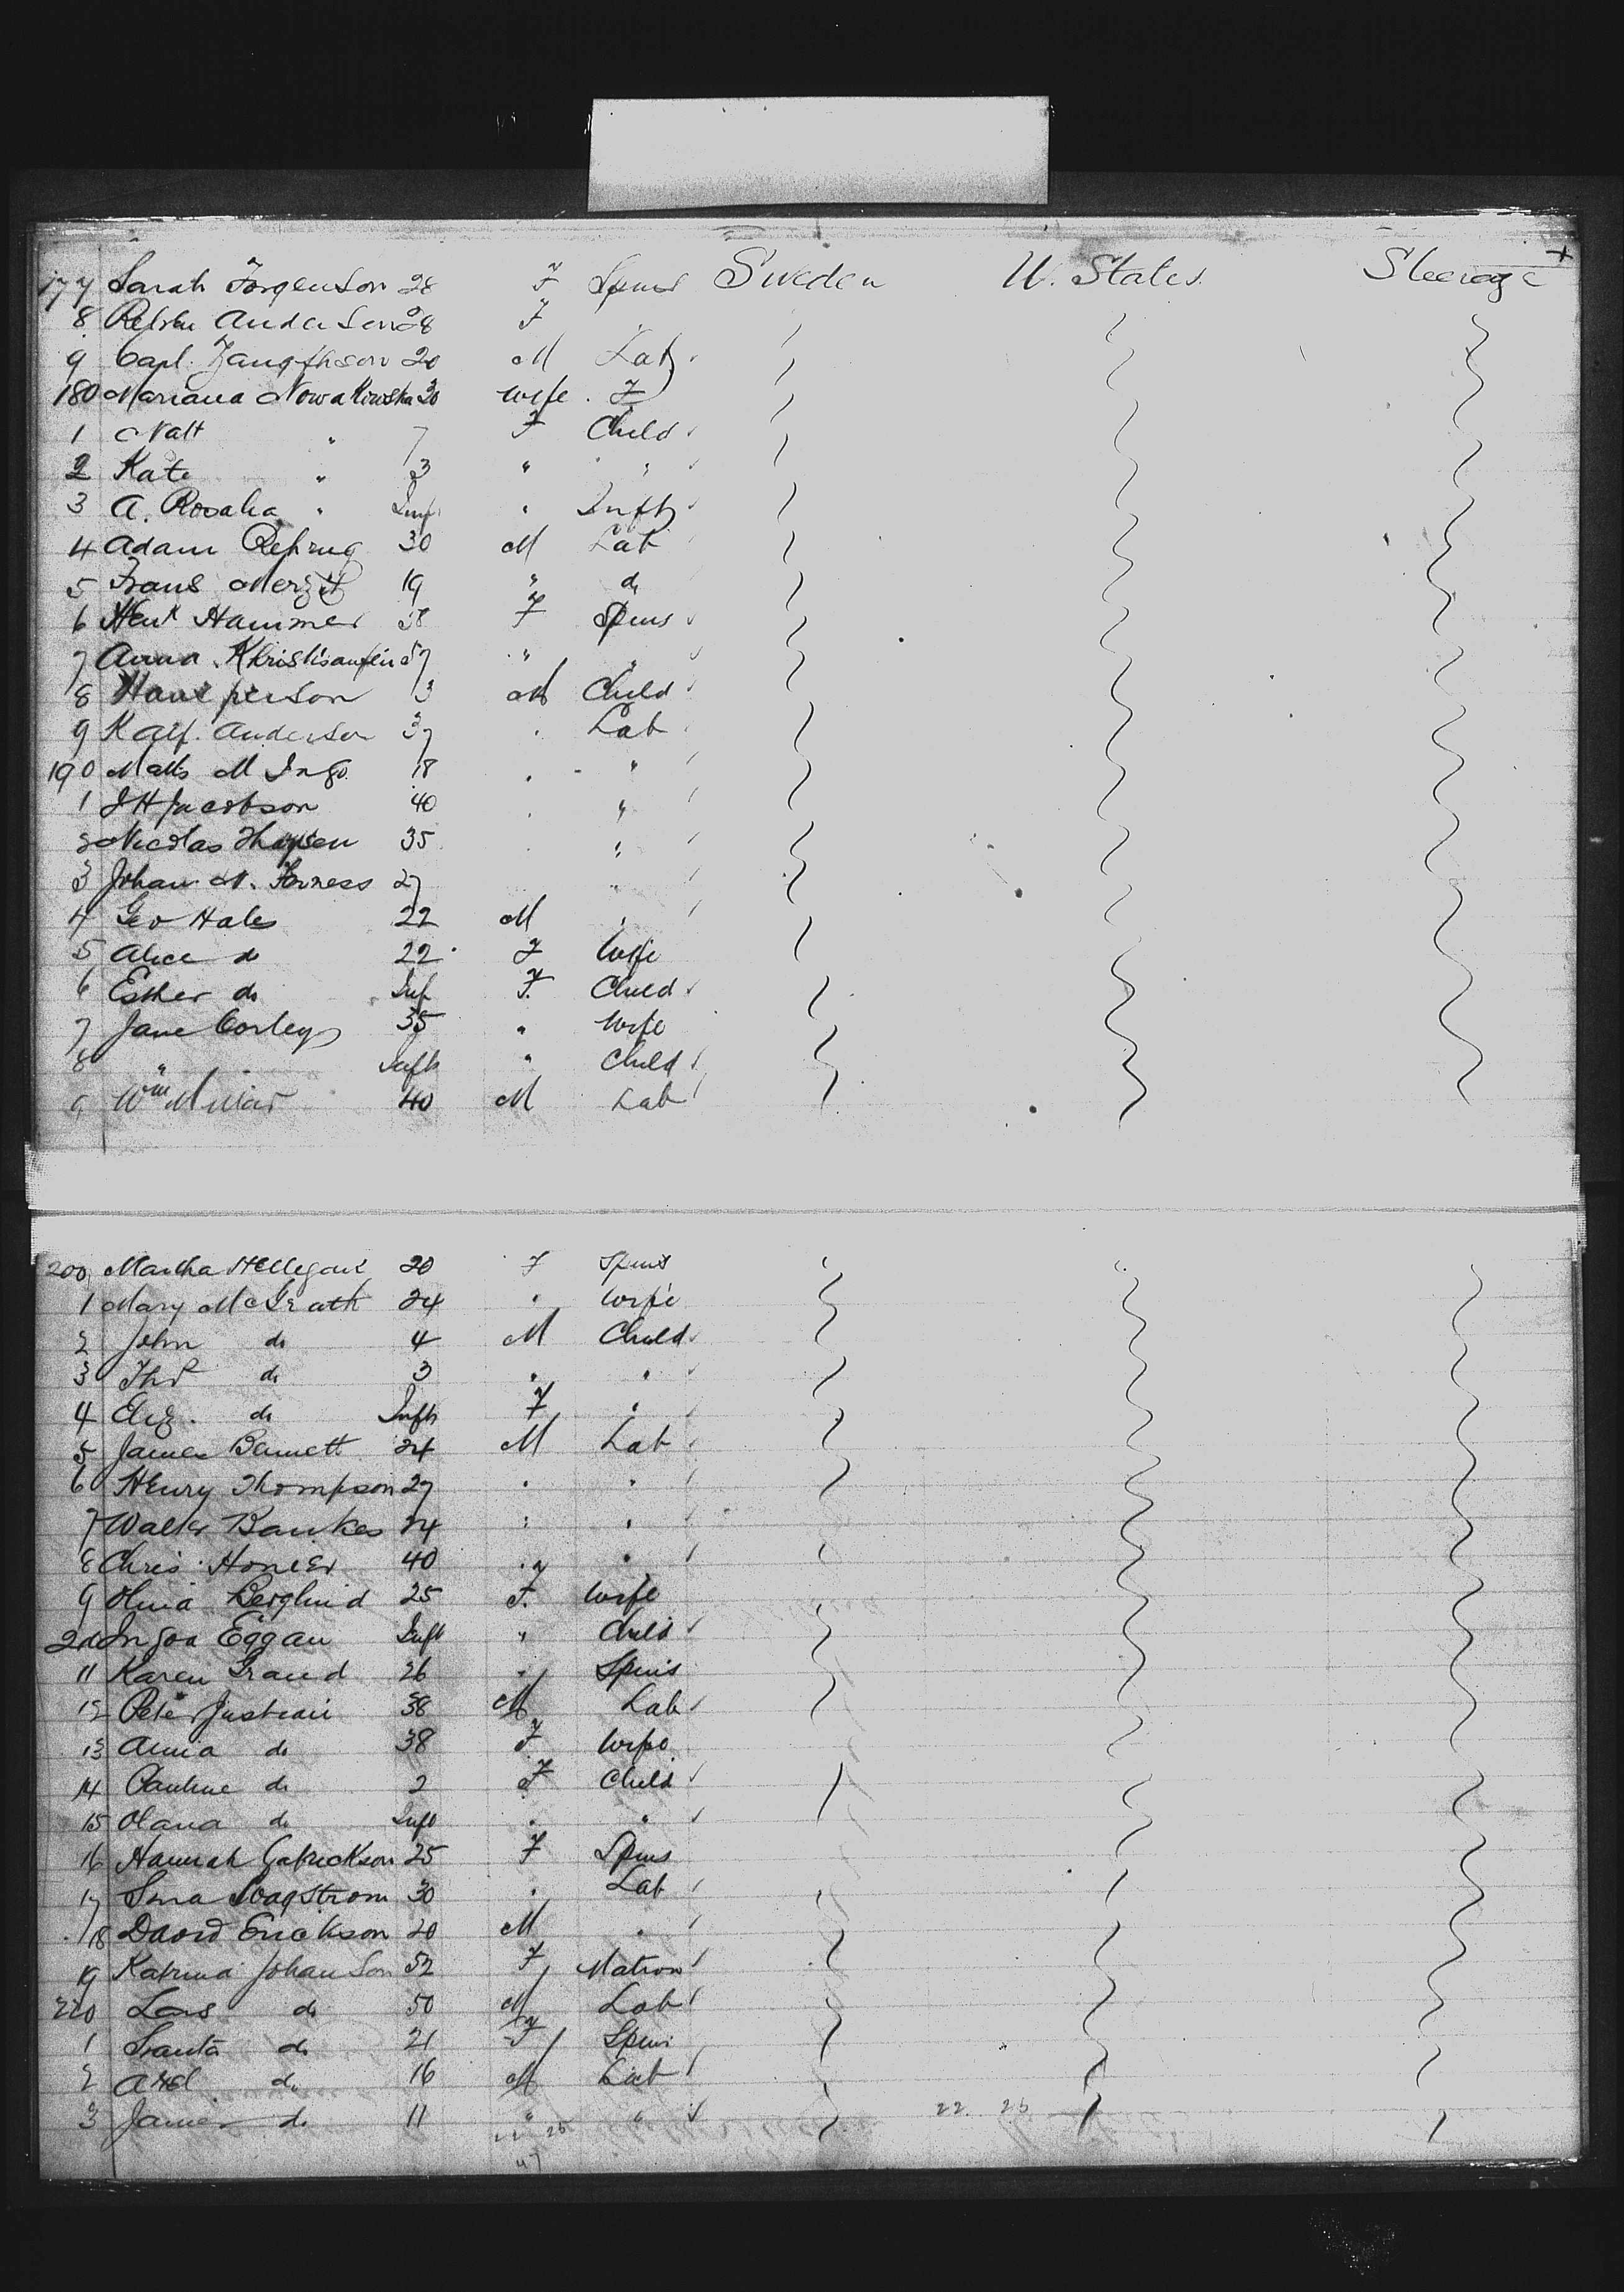 177 Sarah Jorgenson 28 F Spins Sweden U. States Steerage +
8 Anderson 28 F
9 Carl 20 M Lab
180 Mariana Nowakowska 30 wife F
1 Natt " 7 F Child
2 Kate " 3 " "
3 A. Rosalia " Inf " Inft
4 Adam 30 M Lab
5 Frans 19 " do
6 Hammer 38 F Spins
7 Anna " "
8 Hans person 3 M Child
9 K Alf. Anderson 37 " Lab
190 Matts M Ingo 18 " "
1 J H Jacobson 40 " "
2 Nicolas 35 " "
3 Johan 27 " "
4 Geo Hales 22 M "
5 Alice do 22 F Wife
6 Esther do Inf F. Child
7 Jane Corley 35 " Wife
8 " Inft " Child
9 Wm Millar 40 M Lab
200 Martha 20 F Spins
1 Mary McGrath 24 " Wife
2 John do 4 M Child
3 Thos do 3 " "
4 Eliz. do Inft F "
5 James Bennett 24 M Lab
6 Henry Thompson 27 " "
7 Walter Bankes 24 " "
8 Chris. 40 " "
9 Berglund 25 F. Wife
210 Eggan Inft " Child
11 Karen Grand 26 " Spins
12 Peter 38 M Lab
13 Anna do 38 F Wife
14 Pauline do 2 F Child
15 Olana do Inft " "
16 Hannah 25 F Spins
17 30 " Lab
18 David Erickson 20 M "
19 Katrina Johanson 52 F Matron
220 Lars do 50 M Lab
1 do 21 F Spin
2 Axel do 16 M Lab
3 do 11 " " 22 25
22 25
47